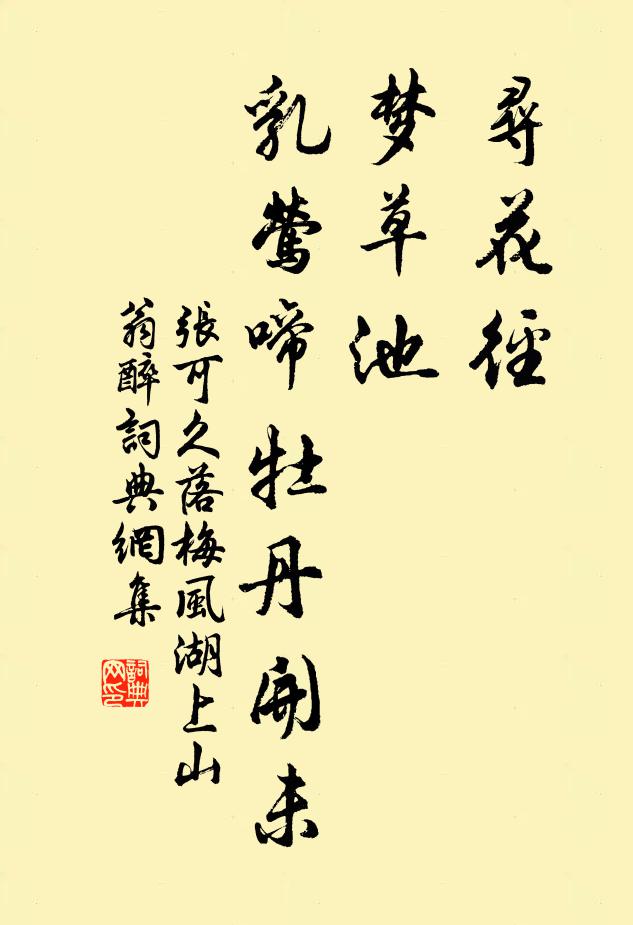 尋花徑
梦草池
乳鶯啼牡丹開未
張可久落梅風湖上山
翁醉詞典網集
詞典
网印